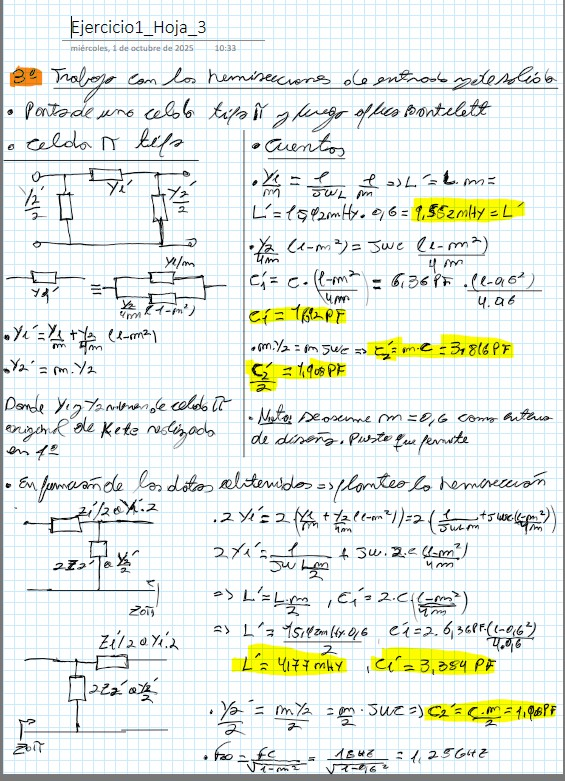 Ejercicio1_Hoja_3
miércoles, 1 de octubre de 2025 10:33
3º Trabajo con las hemisecciones de entrada y de salida
• Parto de una celda tipo π y luego aplico Bartelett
• Celda π tipo
Y1'
Y2'/2
Y2'/2
Y1' ≡
Y1/m
Y2/4m (1-m²)
• Y1' = Y1/m + Y2/4m (1-m²)
• Y2' = m.Y2
Donde Y1 y Y2 de celda π
original de realizado
en 1º
• Cuentas
• Y1/m = 1/JWL 1/m => L' = L.m =
L' = 15,92mHy.0,6 = 9,552mHy = L'
• Y2/4m (1-m²) = Jwc (1-m²)/4m
C1' = C.(1-m²)/4m = 6,36PF.(1-0,6²)/4.0,6
C1' = PF
• m.Y2 = m Jwc => C2' = m.C = 3,816PF
C2'/2 = 1,908PF
• Nota: Se asume m = 0,6 como
de diseño. Puesto que permite
• En función de los datos obtenidos => planteo la hemisección
Z1'/2 o Y1'.2
2Z2' o Y2'/2
Zoπ
Z1'/2 o Y1'.2
2Z2' o Y2'/2
Zoπ
• 2Y1' = 2(Y1/m + Y2/4m (1-m²)) = 2(1/JwLm + Jwc(1-m²)/4m)
2Y1' = 1/(JwLm/2) + Jw.2.c (1-m²)/4m
=> L' = L.m/2 , C1' = 2.C (1-m²)/4m
=> L' = 15,92mHy.0,6/2 , C1' = 2.6,36PF.(1-0,6²)/4.0,6
L' = 4,77mHy , C1' = 3,384 PF
• Y2'/2 = mY2/2 = m/2 . Jwc => C2' = C.m/2 = 1,908PF
• f∞ = fc/√(1-m²) = 1GHZ/√(1-0,6²) = 1,25GHZ